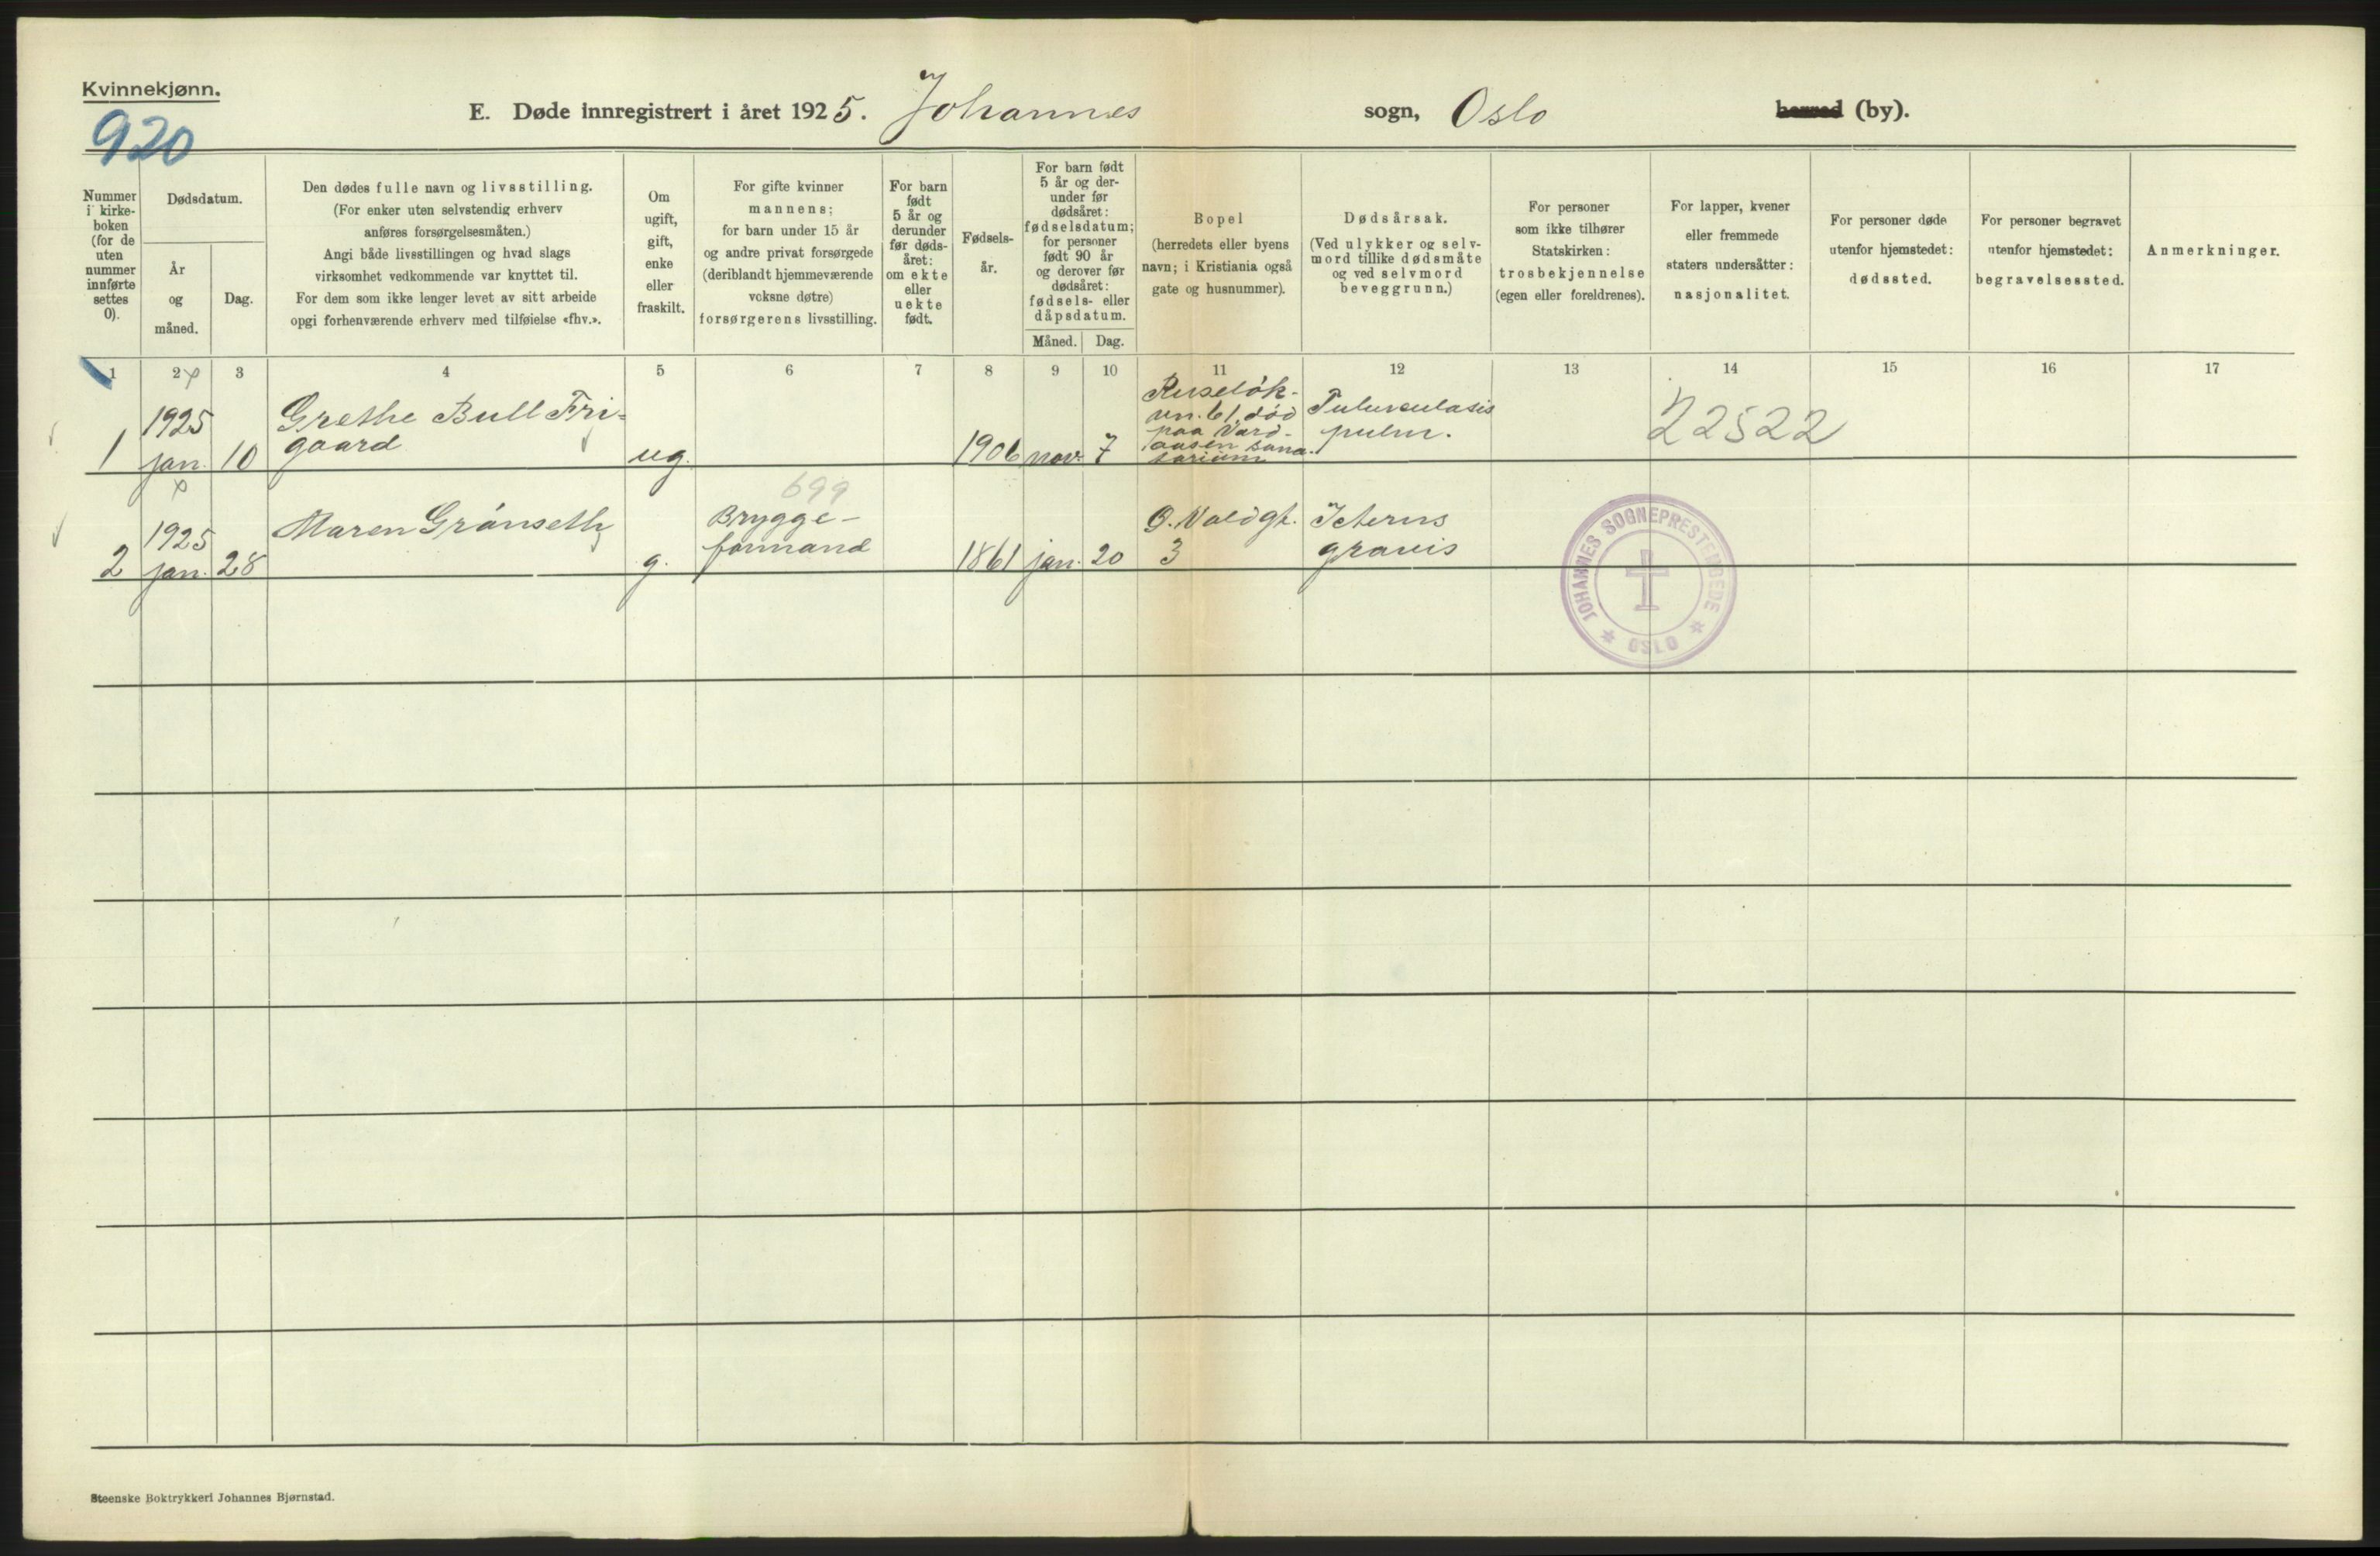 Kvinnekjønn.
920
E. Døde innregistrert i året 1925. Johannes sogn, Oslo herred (by).
Nummer
i kirke-
boken
(for de
uten
nummer
innførte
settes
0).
Dødsdatum.
År
og
måned.
Dag.
Den dødes fulle navn og livsstilling.
(For enker uten selvstendig erhverv
anføres forsørgelsesmåten.)
Angi både livsstillingen og hvad slags
virksomhet vedkommende var knyttet til.
For dem som ikke lenger levet av sitt arbeide
opgi forhenværende erhverv med tilføielse «fhv.».
Om
ugift,
gift,
enke
eller
fraskilt.
For gifte kvinner
mannens;
for barn under 15 år
og andre privat forsørgede
(deriblandt hjemmeværende
voksne døtre)
forsørgerens livsstilling.
For barn
født
5 år og
derunder
før døds-
året:
om ekte
eller
uekte
født.
Fødsels-
år.
For barn født
5 år og der-
under før
dødsåret:
fødselsdatum;
for personer
født 90 år
og derover før
dødsåret:
fødsels- eller
dåpsdatum.
Måned.
Dag.
Bopel
(herredets eller byens
navn; i Kristiania også
gate og husnummer).
Dødsårsak.
(Ved ulykker og selv-
mord tillike dødsmåte
og ved selvmord
beveggrunn.)
For personer
som ikke tilhører
Statskirken:
trosbekjennelse
(egen eller foreldrenes).
For lapper, kvener
eller fremmede
staters undersåtter:
nasjonalitet.
For personer døde
utenfor hjemstedet:
dødssted.
For personer begravet
utenfor hjemstedet:
begravelsessted.
Anmerkninger.
1 2 3 4 5 6 7 8 9 10 11 12 13 14 15 16 17
1
1925
jan.
10
Grethe Bull Fri=
gaard
ug.
1906 nov. 7
Ruseløk-
vn. 61, død
paa Vard-
aasen sana-
torium
Tuberculosis
pulm.
22522
2
1925
jan.
28
Maren Grånseth
g.
699
Brygge-
formand
1861 jan. 20
O. Voldgt.
3
Icterus
gravis
JOHANNES SOGNEPRESTEMBEDE
OSLO
Steenske Boktrykkeri Johannes Bjørnstad.